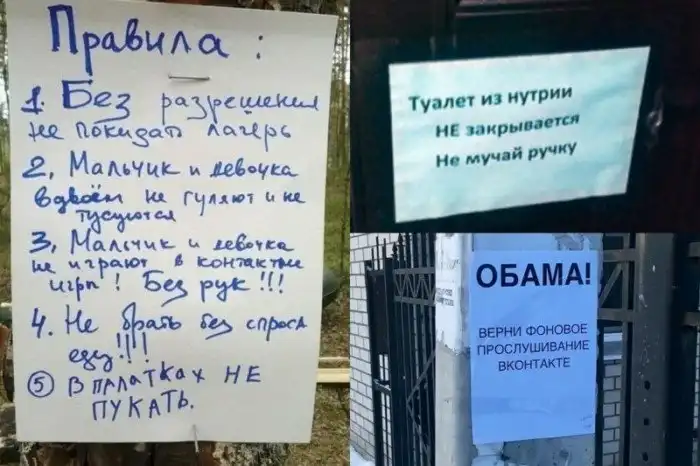 Правила:
1. Без разрешения
не покидать лагерь
2, Мальчик и девочка
вдвоём не гуляют и не
тусуются
3, Мальчик и девочка
не играют в контактные
игры! Без рук!!!
4. Не брать без спроса
еду!!!
5 В ПАЛАТКАХ НЕ
ПУКАТЬ.
Туалет из нутрии
НЕ закрывается
Не мучай ручку
ОБАМА!
ВЕРНИ ФОНОВОЕ
ПРОСЛУШИВАНИЕ
ВКОНТАКТЕ